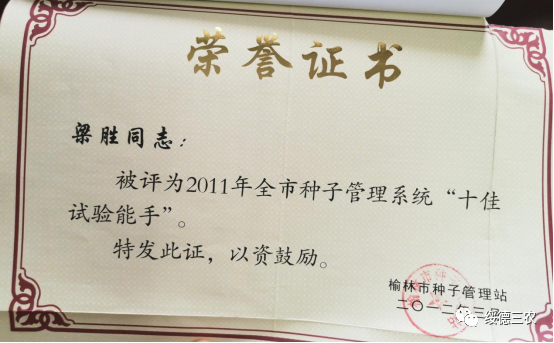 荣誉证书
梁胜同志：
被评为2011年全市种子管理系统“十佳
试验能手”。
特发此证，以资鼓励。
榆林市种子管理站
二〇一二年三月
绥德三农